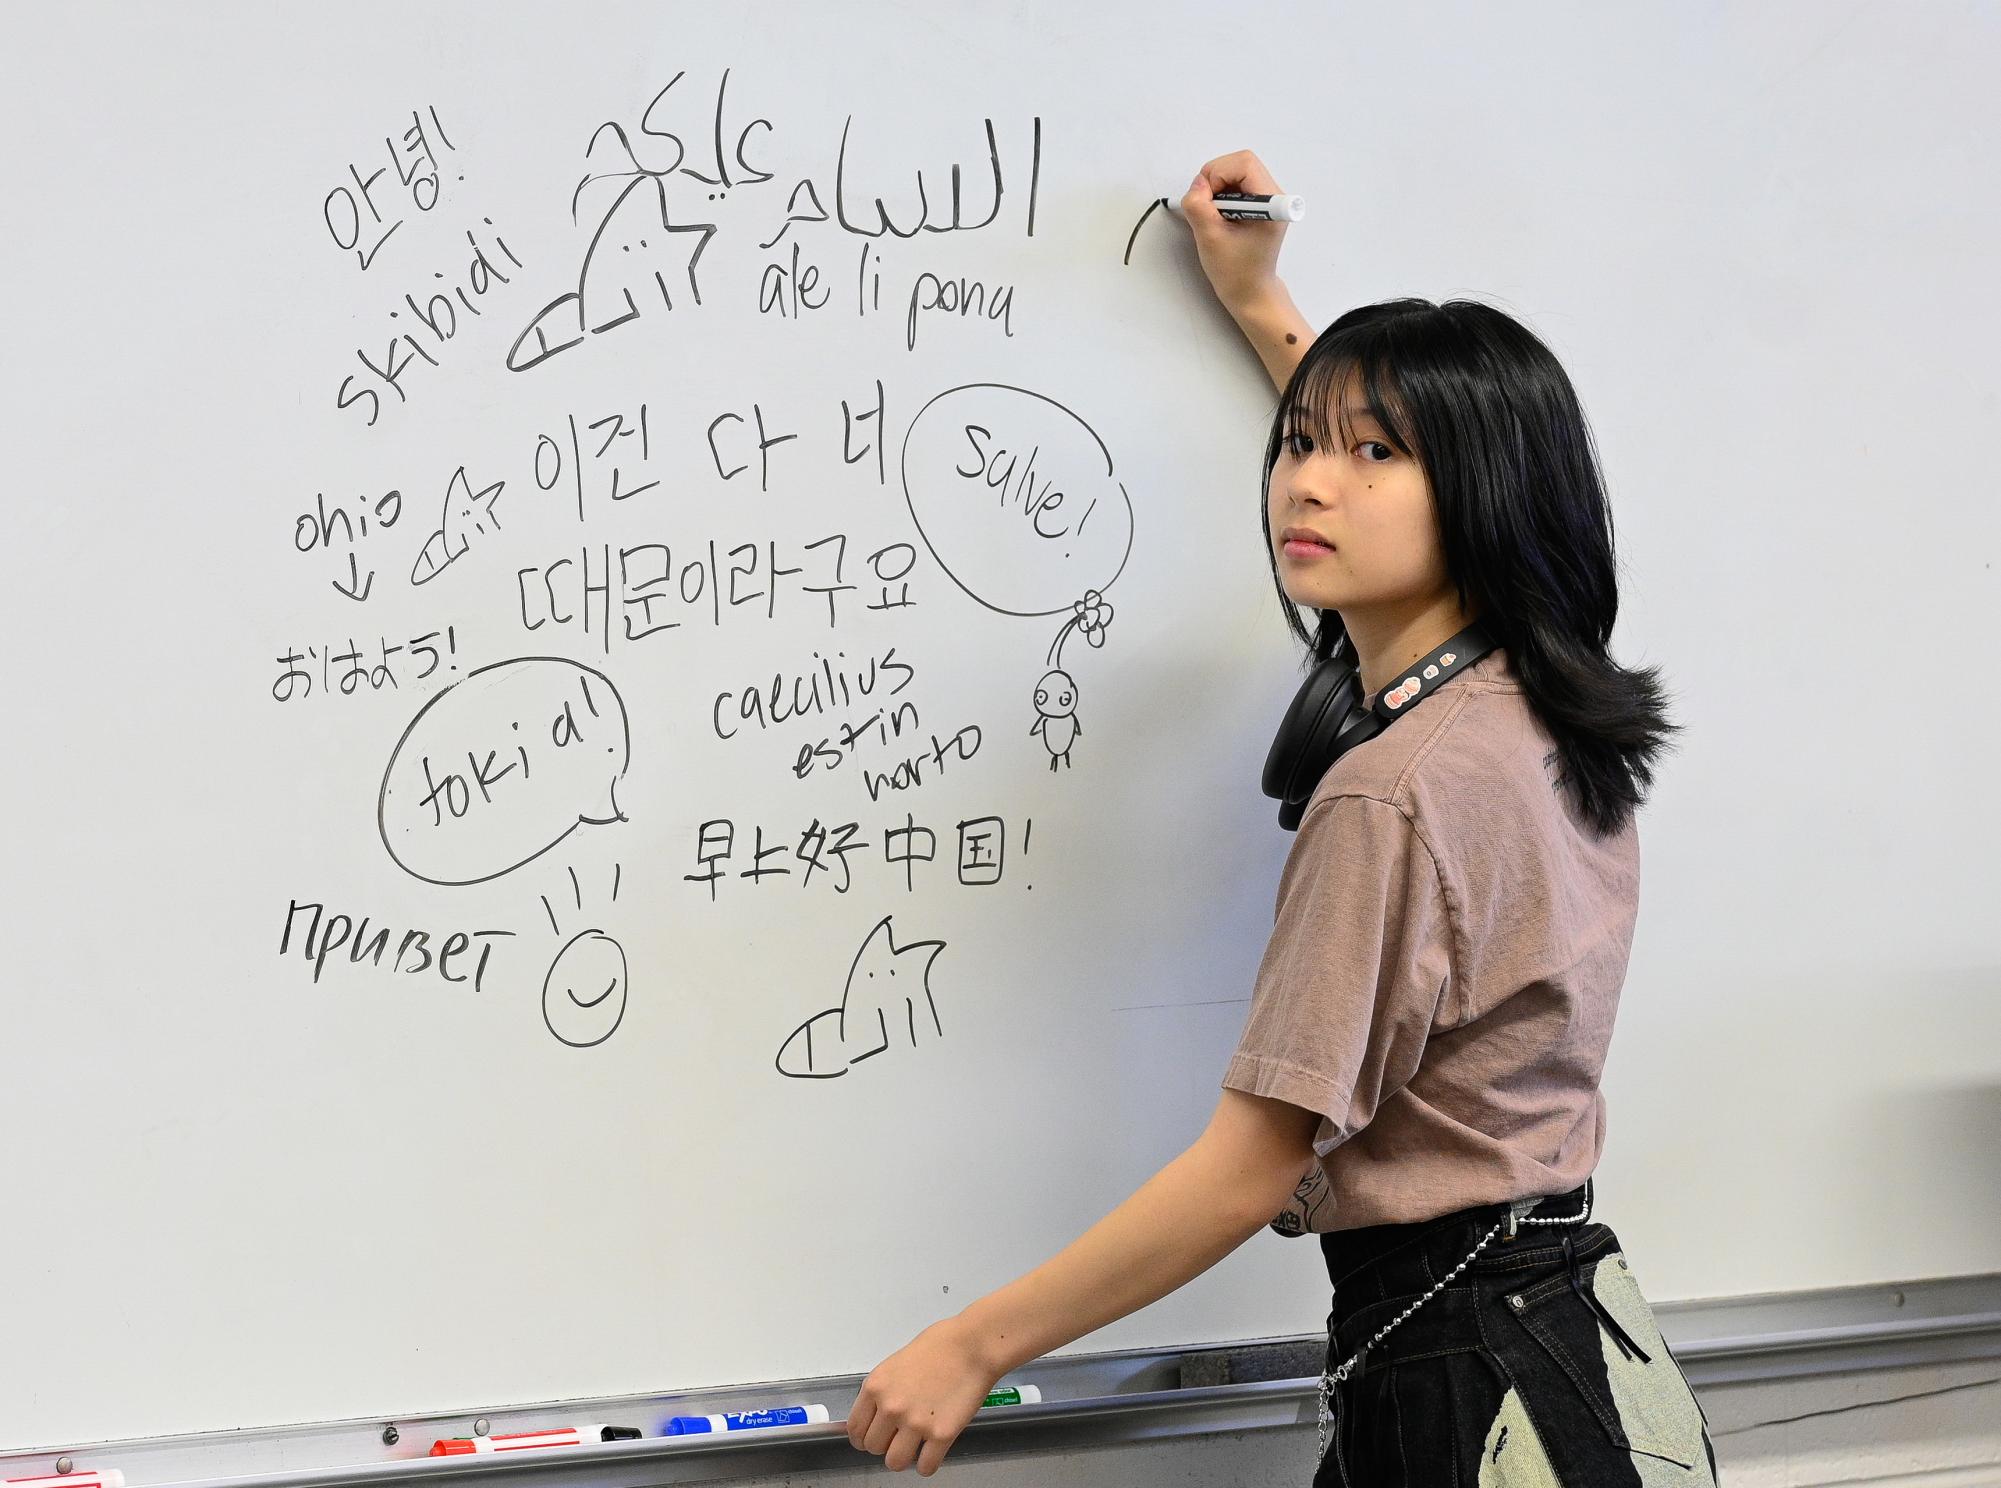 안녕!
السلام عليكم
skibidi
ale li pona
이건 다 너
salve!
ohio
때문이라구요
おはよう!
toki a!
caecilius
est in
horto
早上好中国!
привет
EXPO
dry erase